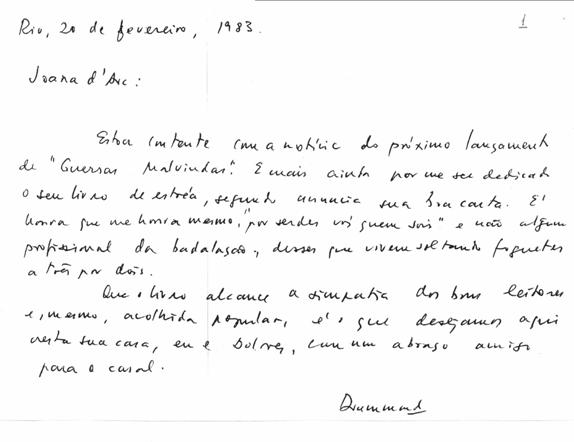 1
Rio, 20 de fevereiro, 1983.
Joana d'Arc:
Estou contente com a notícia do próximo lançamento
de "Guerras Malvindas". E mais ainda por me ser dedicado
o seu livro de estréa, segundo anuncia sua boa carta. É
honra que me honra mesmo, "por serdes vós quem sois" e não algum
profissional da badalação, desses que vivem soltando foguetes
a três por dois.
Que o livro alcance a simpatia dos bons leitores
e, mesmo, acolhida popular, é o que desejamos aqui
nesta sua casa, eu e Dolores, com um abraço amigo
para o casal.
Drummond